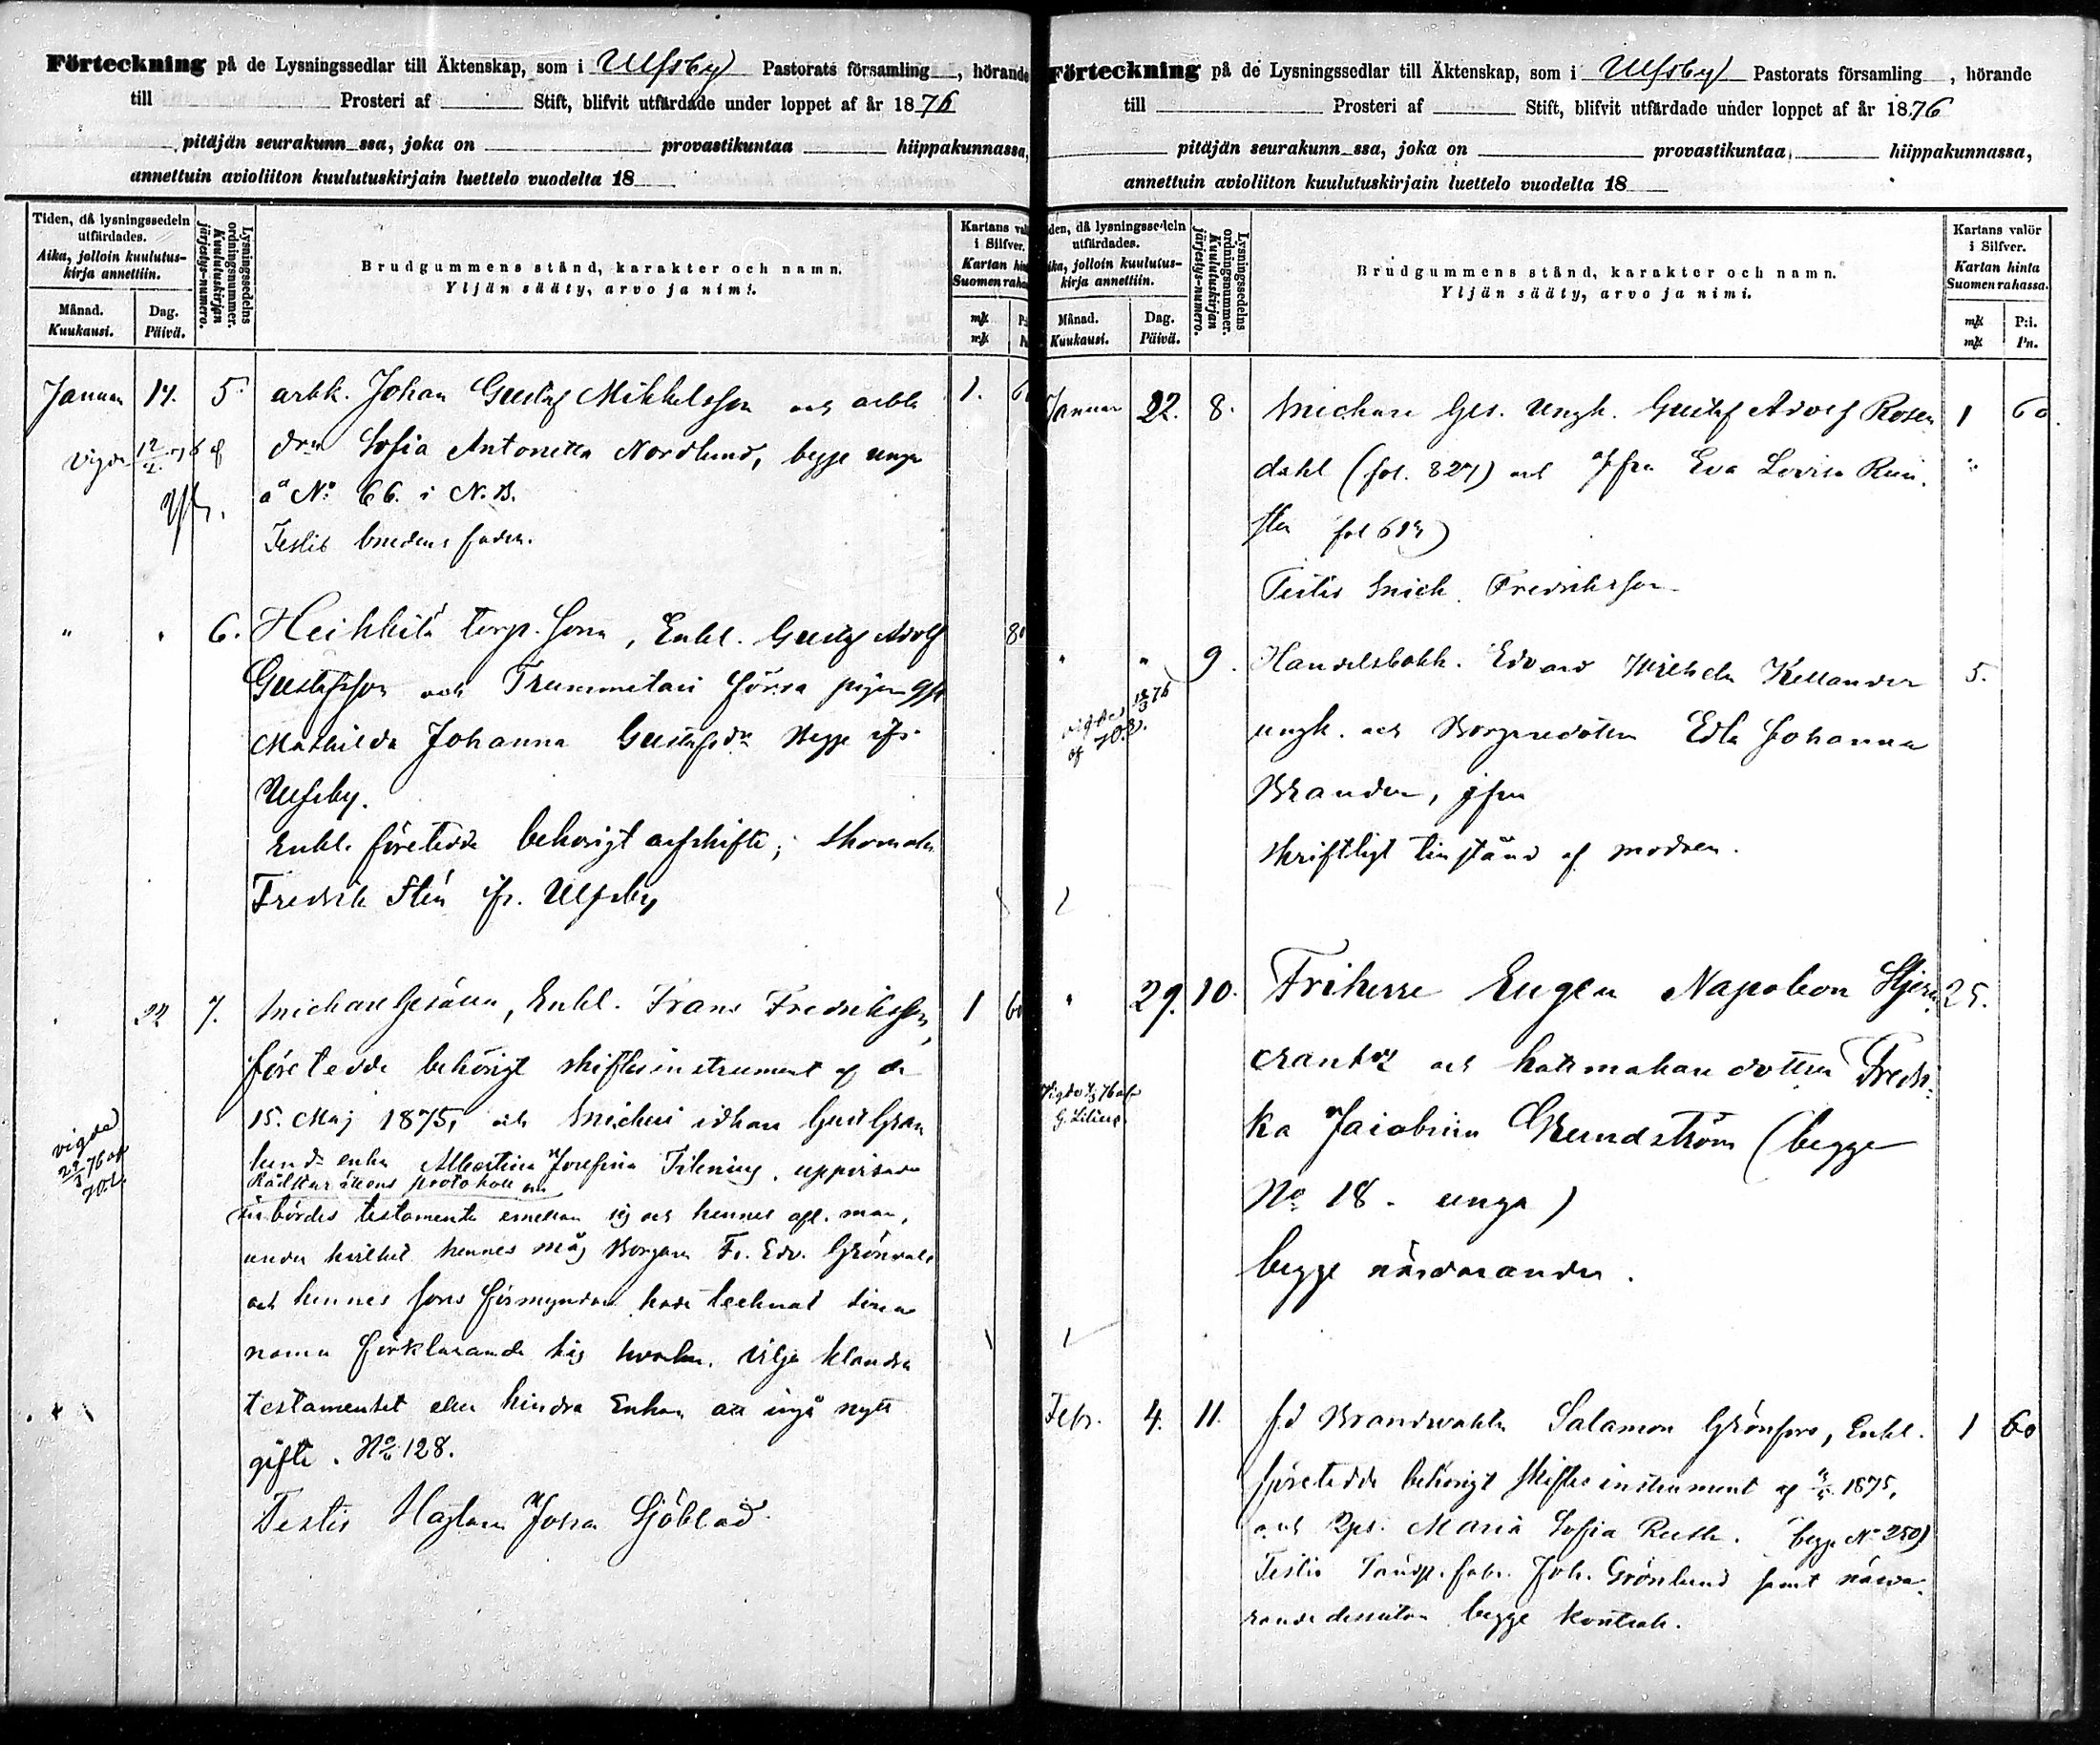 Förteckning på de Lysningssedlar till Äktenskap, som i Ulfsby Pastorats församling , hörande
till Prosteri af Stift, blifvit utfärdade under loppet af år 1876
pitäjän seurakunn ssa, joka on provastikuntaa hiippakunnassa,
annettuin avioliiton kuulutuskirjain luettelo vuodelta 18
Tiden, då lysningssedeln
utfärdades.
Aika, jolloin kuulutus-
kirja annettiin.
Månad.
Kuukausi.
Dag.
Päivä.
Lysningssedelns
ordningsnummer.
Kuulutuskirjan
järjestys-numero.
Brudgummens stånd, karakter och namn.
Yljän sääty, arvo ja nimi.
Kartans
i Silfver.
Kartan
Suomen
mk
mk
Januari 14. 5. arbk. Johan Gustaf Mikkelsson och arbk
vigde dr Sofia Antonetta Nordlund, begge unga
å No 66. i N. B.
Testis brudens fader.
" 6. Heikkilä torp. son, Enkl. Gustaf Adolf
Gustafsson och Trummetari förra pigan
Mathilda Johanna Gustafsdr Begge ifr.
Ulfsby.
Enkl. företedde behörigt afskifte;
Fredrik Stén ifr. Ulfsby
22 7. Snickare , Enkl. Frans Fredriksson, 1
företedde behörigt skiftesinstrument af de
15. Maj 1875, och Snickeri idkare Gust Gran
lunds enka Albertina Josefina , uppvisade
Rådsturättens protokoll
inbördes testamente emellan sig och hennes afl. man,
under hvilket hennes måg Borgare Fr. Edv. Grönvall
och hennes sons förmyndare hade tecknat sina
namn förklarande sig hvarken vilja klandra
testamentet eller hindra Enkan att ingå nytt
gifte. No 128.
Testis Johan Sjöblad
vigde
76 af
Förteckning på de Lysningssedlar till Äktenskap, som i Ulfsby Pastorats församling , hörande
till Prosteri af Stift, blifvit utfärdade under loppet af år 1876
pitäjän seurakunn ssa, joka on provastikuntaa hiippakunnassa,
annettuin avioliiton kuulutuskirjain luettelo vuodelta 18
den, då lysningssedeln
utfärdades.
ika, jolloin kuulutus-
kirja annettiin.
Månad.
Kuukausi.
Dag.
Päivä.
Lysningssedelns
ordningsnummer.
Kuulutuskirjan
järjestys-numero.
Brudgummens stånd, karakter och namn.
Yljän sääty, arvo ja nimi.
Kartans valör
i Silfver.
Kartan hinta
Suomen rahassa.
mk P:i.
mk Pn.
Januar 22. 8. Snickare Ges. Ungk. Gustaf Adolf Rosen 1 60
dahl (fol. 827) och Jfru Eva Lovisa
Testis Snick. Fredriksson
" " 9. Handelsbokh. Edvard Wilhelm Kellander 5.
ungk. och Borgaredotter Edla Johanna
Brander, jfru
skriftligt tillstånd af modren.
" 29. 10. Friherre Eugen Napoleon Stjern 25.
crantz och hattmakaredottren Fredri-
ka Jacobina Grundström (begge
No 18 - unga)
begge närvarande.
Febr. 4. 11. f.d Brandvakten Salamon Grönfors, Enkl. 1 60
företedde behörigt skiftes instrument af 1875,
och Maria Sofia Ruth. (begge No 250)
Testis Joh. Grönlund samt närva-
rande dessutom begge kontrah.